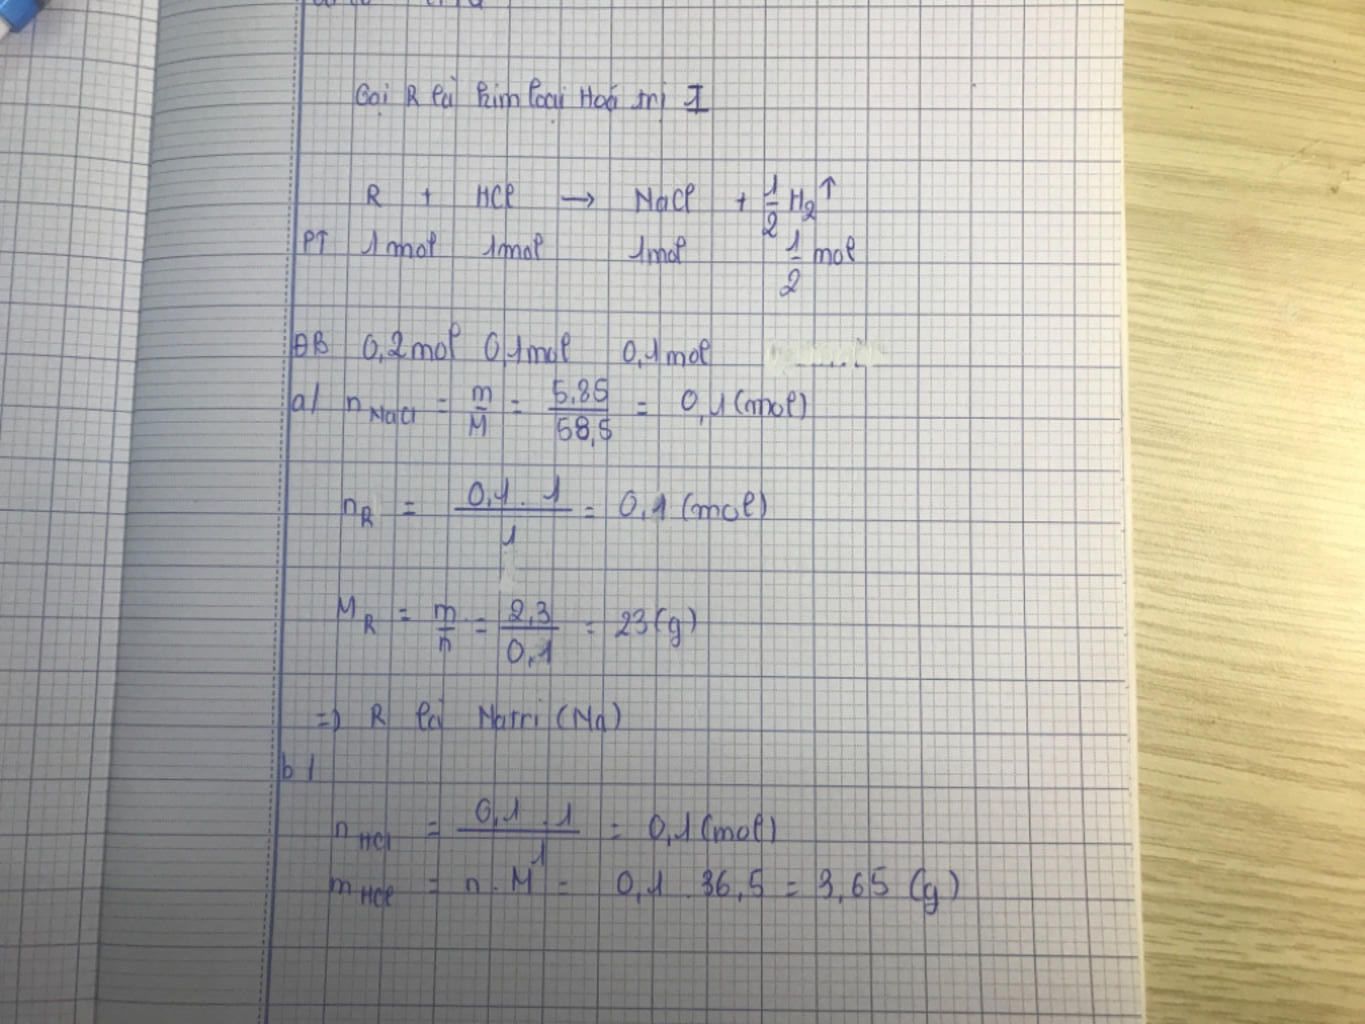 Gọi R là kim loại Hoá trị I
R + HCl → NaCl + 1/2 H₂↑
PT 1mol 1mol 1mol 1/2 mol
ĐB 0,2mol 0,1mol 0,1mol
a/ n NaCl = m/M = 5,85/58,5 = 0,1 (mol)
n R = 0,1 . 1/1 = 0,1 (mol)
M R = m/n = 2,3/0,1 = 23 (g)
=> R là Natri (Na)
b/
n HCl = 0,1 . 1/1 = 0,1 (mol)
m HCl = n . M = 0,1 . 36,5 = 3,65 (g)